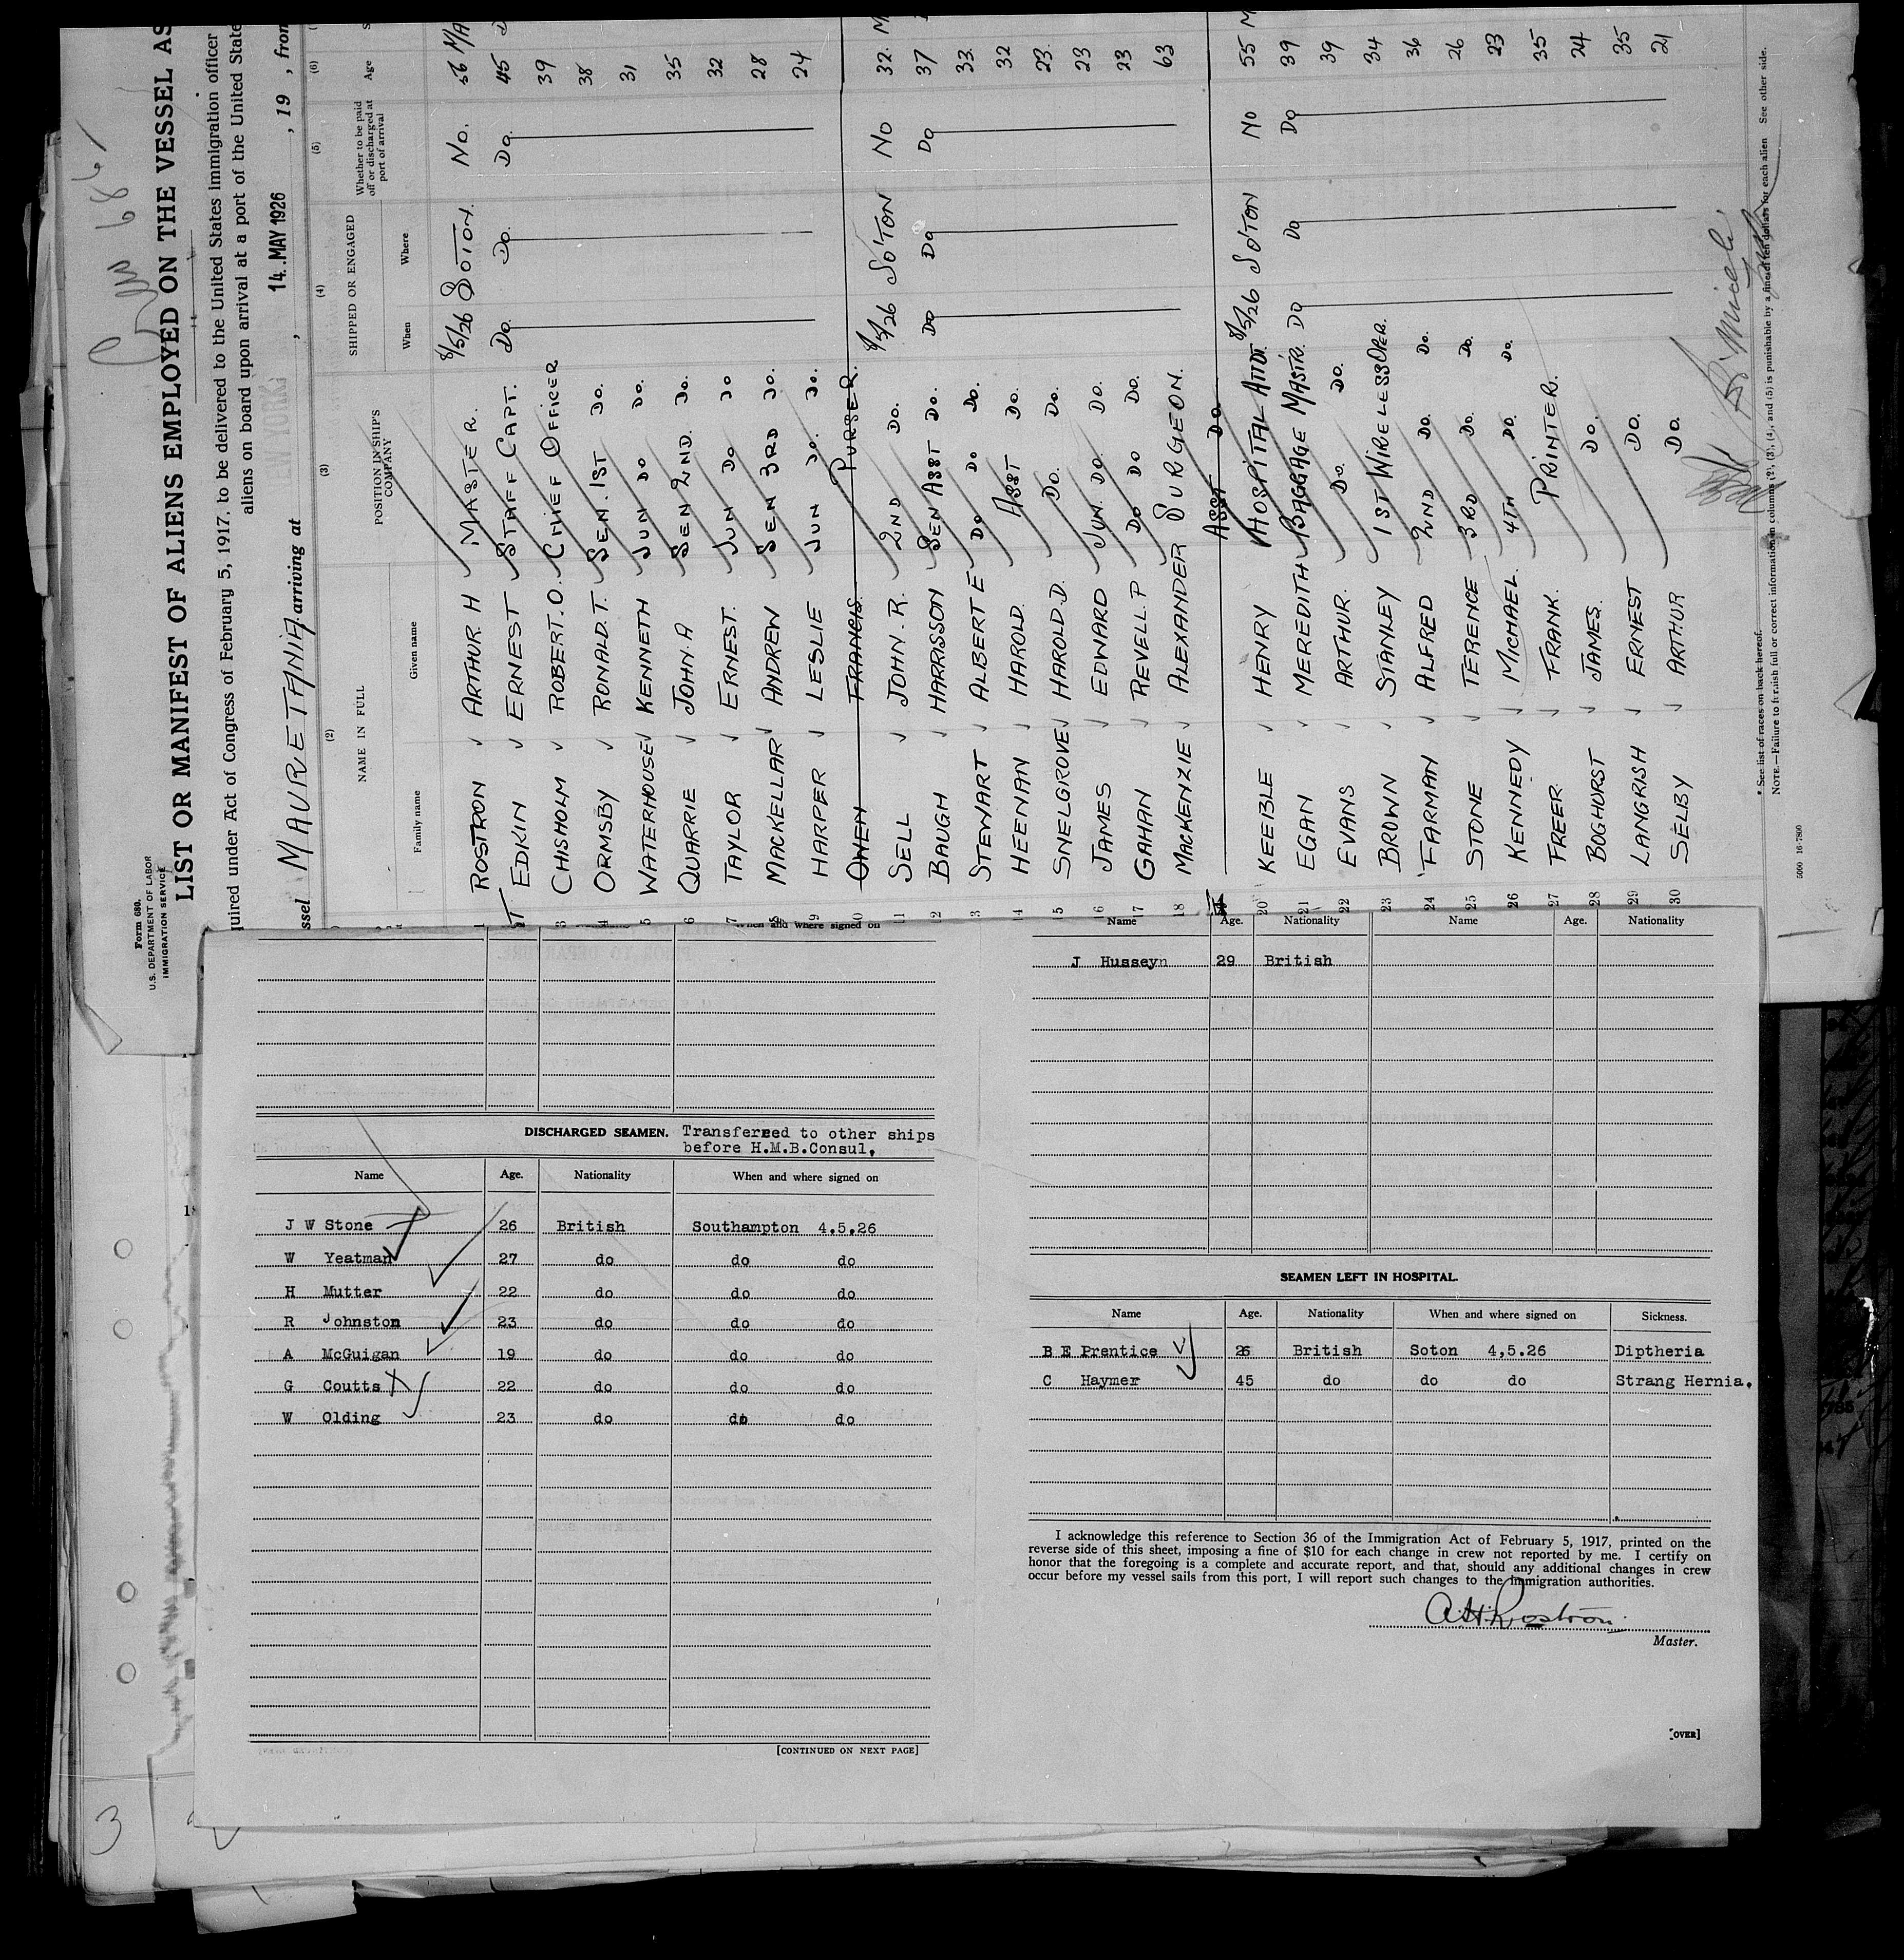 Form 680.
U.S. DEPARTMENT OF LABOR
IMMIGRATION SERVICE
LIST OR MANIFEST OF ALIENS EMPLOYED ON THE VESSEL AS
quired under Act of Congress of February 5, 1917, to be delivered to the United States Immigration officer
aliens on board upon arrival at a port of the United State
ssel MAURETANIA, arriving at , 14 MAY 1926 , 19 , from
(2) (3) (4) (5) (6)
NAME IN FULL POSITION IN SHIPS COMPANY SHIPPED OR ENGAGED Whether to be paid off or discharged at port of arrival Age
Family name Given name When Where
1 ROSTRON ✓ ARTHUR H MASTER. 8/5/26 SOTON. No. 56 M/A
EDKIN ✓ ERNEST STAFF CAPT. Do. Do. Do. 45
3 CHISHOLM ✓ ROBERT. O. CHIEF OFFICER 39
4 ORMSBY ✓ RONALD. T. SEN. 1ST DO. 38
5 WATERHOUSE ✓ KENNETH JUN DO DO. 31
6 QUARRIE ✓ JOHN. A SEN 2ND. DO. 35
7 TAYLOR ✓ ERNEST. JUN DO DO 32
8 MACKELLAR ✓ ANDREW SEN 3RD DO. 28
9 HARPER ✓ LESLIE JUN DO. DO. 24
10 OWEN FRANCIS. PURSER.
11 SELL ✓ JOHN. R. 2ND DO. 8/5/26 SO'TON NO 32. M
2 BAUGH ✓ HARRISSON SEN ASST DO. DO DO DO 37
3 STEWART ✓ ALBERT E DO DO DO. 33.
14 HEENAN ✓ HAROLD. ASST DO. 32
15 SNELGROVE ✓ HAROLD. D. DO. DO. 23.
16 JAMES ✓ EDWARD JUN. DO. DO. 23
17 GAHAN REVELL. P DO DO DO. 23
18 MACKENZIE ✓ ALEXANDER SURGEON. 63
ASST DO.
20 KEEIBLE ✓ HENRY HOSPITAL ATTDT. 8/5/26 SO'TON NO 55 M
21 EGAN ✓ MEREDITH BAGGAGE MASTR. DO DO DO 39
22 EVANS ✓ ARTHUR. DO. DO. 39
23 BROWN ✓ STANLEY 1ST WIRELESS OPER. 34
24 FARMAN ✓ ALFRED 2ND DO. DO. 36
25 STONE ✓ TERENCE 3RD DO. DO. 26
26 KENNEDY ✓ MICHAEL. 4TH DO. DO. 23
27 FREER ✓ FRANK. PRINTER. 35
28 BOGHURST ✓ JAMES. DO. 24
29 LANGRISH ✓ ERNEST DO. 35
30 SELBY ✓ ARTHUR DO. 21
* See list of races on back hereof.
NOTE.—Failure to furnish full or correct information in columns (2), (3), (4), and (5) is punishable by a fine of ten dollars for each alien See other side.
When and where signed on
DISCHARGED SEAMEN. Transferred to other ships
before H.M.B.Consul,
Name Age. Nationality When and where signed on
J W Stone 26 British Southampton 4.5.26
W Yeatman 27 do do do
H Mutter 22 do do do
R Johnston 23 do do do
A McGuigan 19 do do do
G Coutts 22 do do do
W Olding 23 do do do
[CONTINUED ON NEXT PAGE]
Name Age. Nationality Name Age. Nationality
J Husseyn 29 British
SEAMEN LEFT IN HOSPITAL.
Name Age. Nationality When and where signed on Sickness.
B E Prentice 26 British Soton 4,5.26 Diptheria
C Haymer 45 do do do Strang Hernia.
I acknowledge this reference to Section 36 of the Immigration Act of February 5, 1917, printed on the
reverse side of this sheet, imposing a fine of $10 for each change in crew not reported by me. I certify on
honor that the foregoing is a complete and accurate report, and that, should any additional changes in crew
occur before my vessel sails from this port, I will report such changes to the immigration authorities.
A.H. Rostron
Master.
[OVER]
3